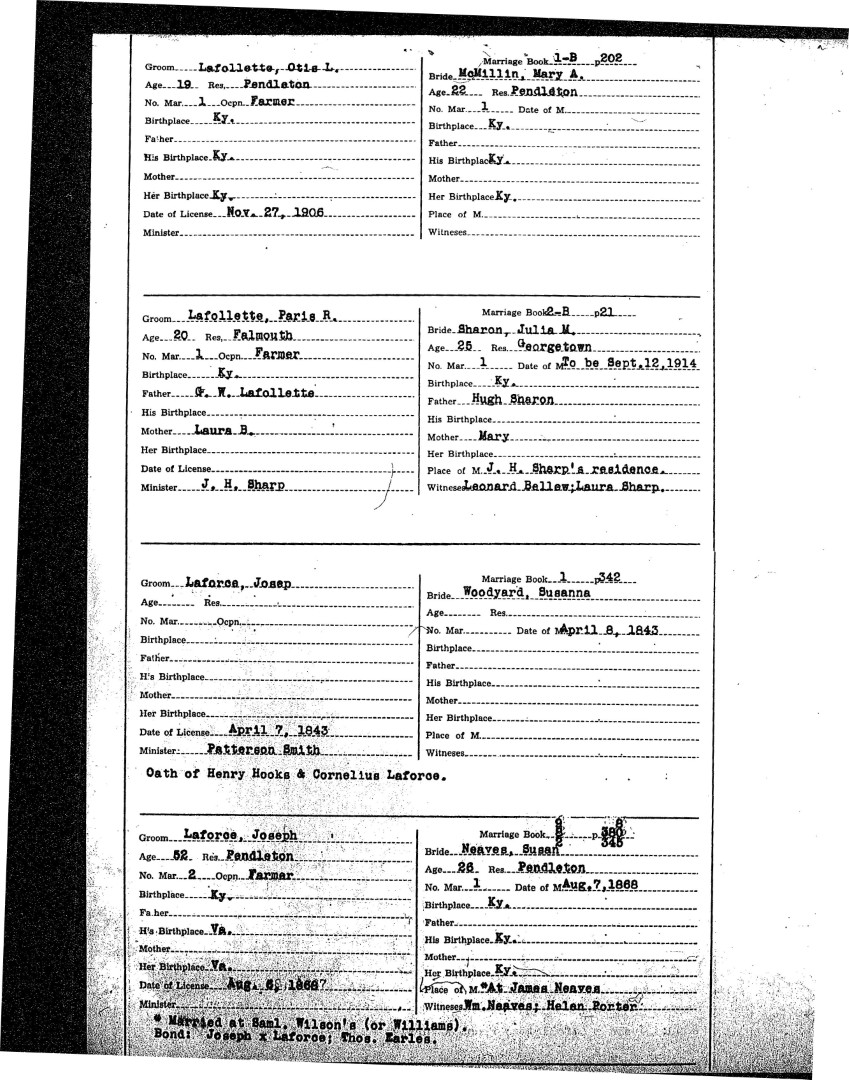 Groom Lafollette, Otis L.
Age 19 Res. Pendleton
No. Mar. 1 Ocpn. Farmer
Birthplace Ky.
Father
His Birthplace Ky.
Mother
Her Birthplace Ky.
Date of License Nov. 27, 1906
Minister
Marriage Book 1-B p202
Bride McMillin, Mary A.
Age 22 Res. Pendleton
No. Mar. 1 Date of M.
Birthplace Ky.
Father
His Birthplace Ky.
Mother
Her Birthplace Ky.
Place of M.
Witneses
Groom Lafollette, Paris R.
Age 20 Res. Falmouth
No. Mar. 1 Ocpn. Farmer
Birthplace Ky.
Father G. W. Lafollette
His Birthplace
Mother Laura B.
Her Birthplace
Date of License
Minister J. H. Sharp
Marriage Book 2-B p21
Bride Sharon, Julia M.
Age 25 Res. Georgetown
No. Mar. 1 Date of M To be Sept.12,1914
Birthplace Ky.
Father Hugh Sharon
His Birthplace
Mother Mary
Her Birthplace
Place of M. J. H. Sharp's residence.
Witneses Leonard Bellew;Laura Sharp.
Groom Laforce, Josep
Age Res.
No. Mar. Ocpn.
Birthplace
Father
H's Birthplace
Mother
Her Birthplace
Date of License April 7, 1843
Minister Patterson Smith
Marriage Book 1 p342
Bride Woodyard, Susanna
Age Res.
No. Mar. Date of M April 8, 1843
Birthplace
Father
His Birthplace
Mother
Her Birthplace
Place of M.
Witneses
Oath of Henry Hooks & Cornelius Laforce.
Groom Laforce, Joseph
Age 52 Res. Pendleton
No. Mar. 2 Ocpn. Farmer
Birthplace Ky.
Fa her
H's Birthplace Va.
Mother
Her Birthplace Va.
Date of License Aug. 6, 1868?
Minister
Marriage Book p. 380
345
Bride Neaves, Susan
Age 26 Res. Pendleton
No. Mar. 1 Date of M Aug.7,1868
Birthplace Ky.
Father
His Birthplace Ky.
Mother
Her Birthplace Ky.
Place of M. *At James Neaves
Witneses Wm.Neaves; Helen Porter
* Married at Saml. Wilson's (or Williams).
Bond: Joseph x Laforce; Thos. Earles.